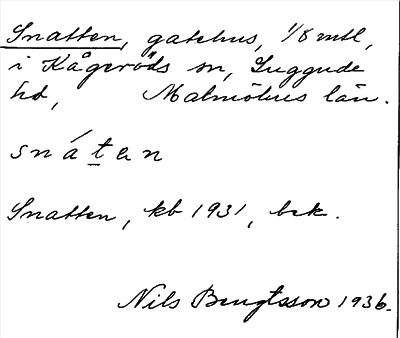 Snatten, gatehus, 1/8 mtl,
i Kågeröds sn, Luggude
hd, Malmöhus län.
snátan
Snatten, kb 1931, bek.
Nils Bengtsson 1936.